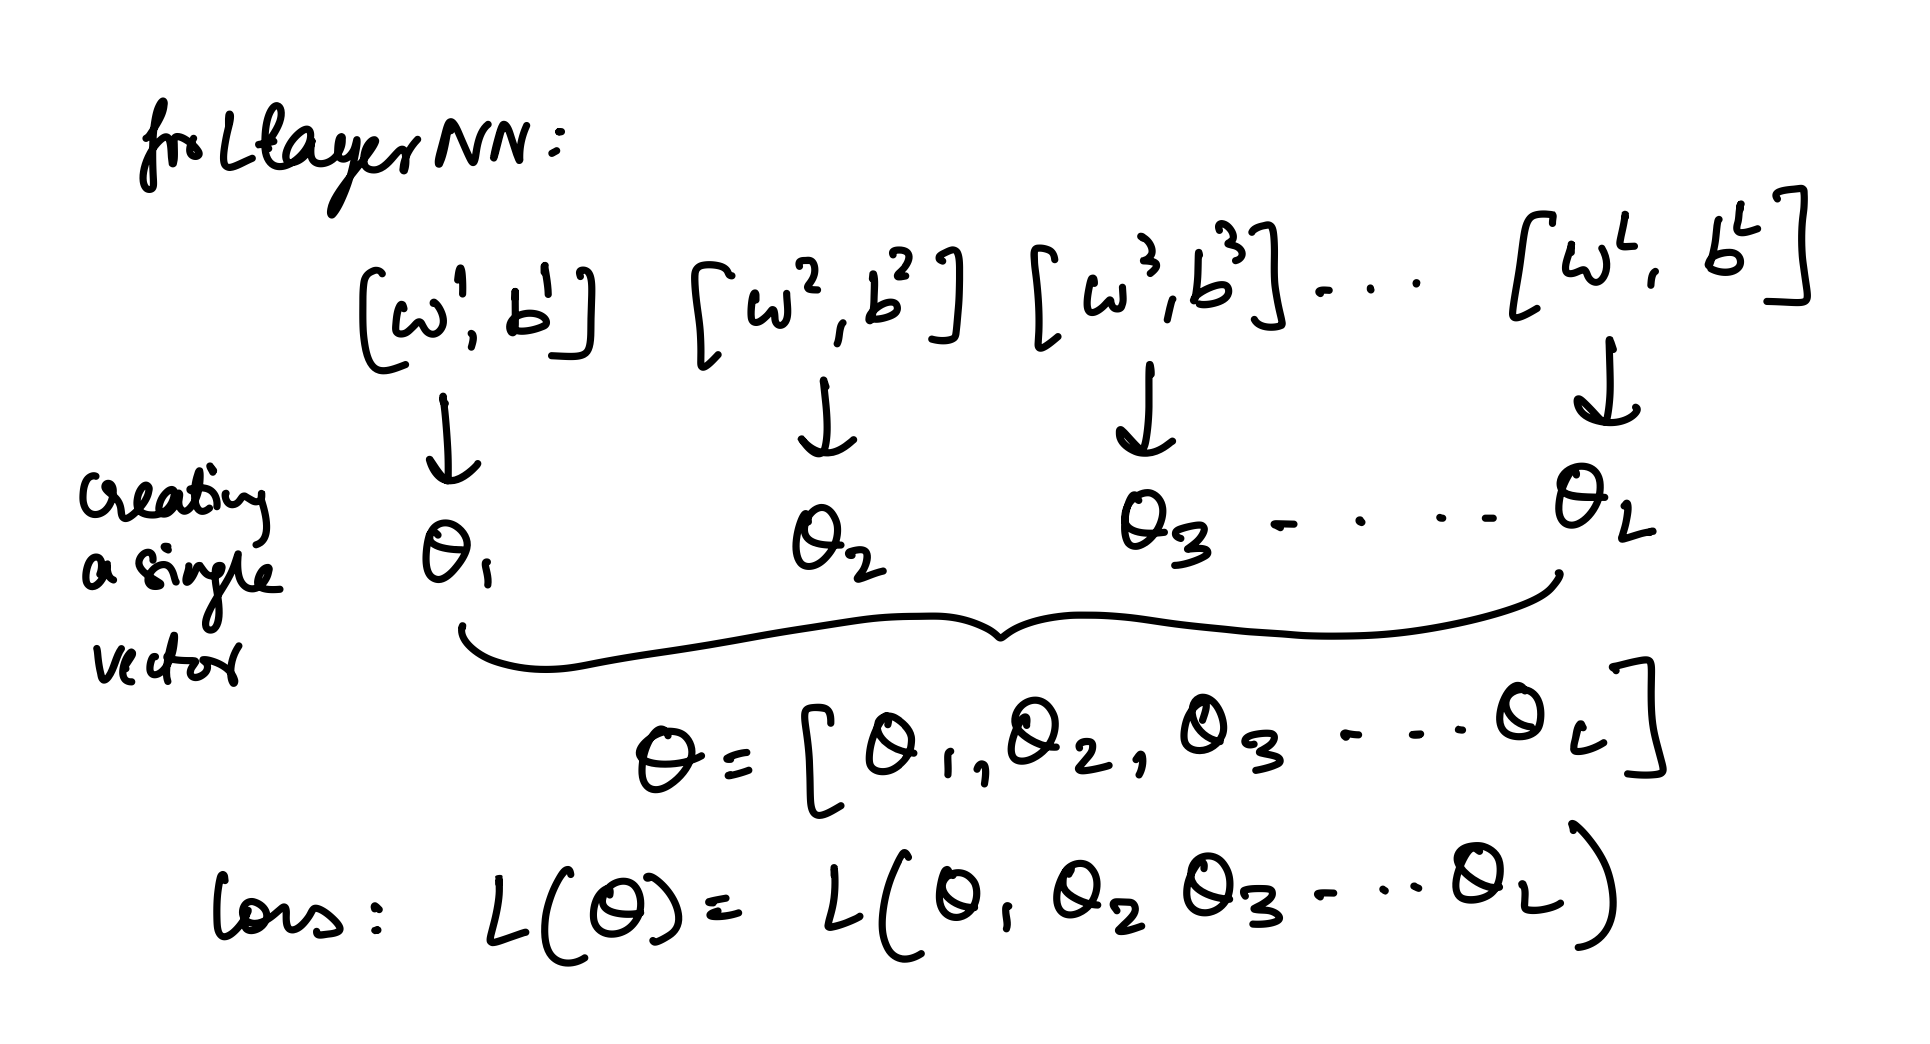 for L layer NN:
[w¹, b¹] [w², b²] [w³, b³] - . . . [wᴸ, bᴸ]
↓ ↓ ↓ ↓
creating
a single
vector
θ₁ θ₂ θ₃ - . . - θ_L
θ = [θ₁, θ₂, θ₃ - - . θ_L]
Loss: L(θ) = L(θ₁ θ₂ θ₃ - . . θ_L)